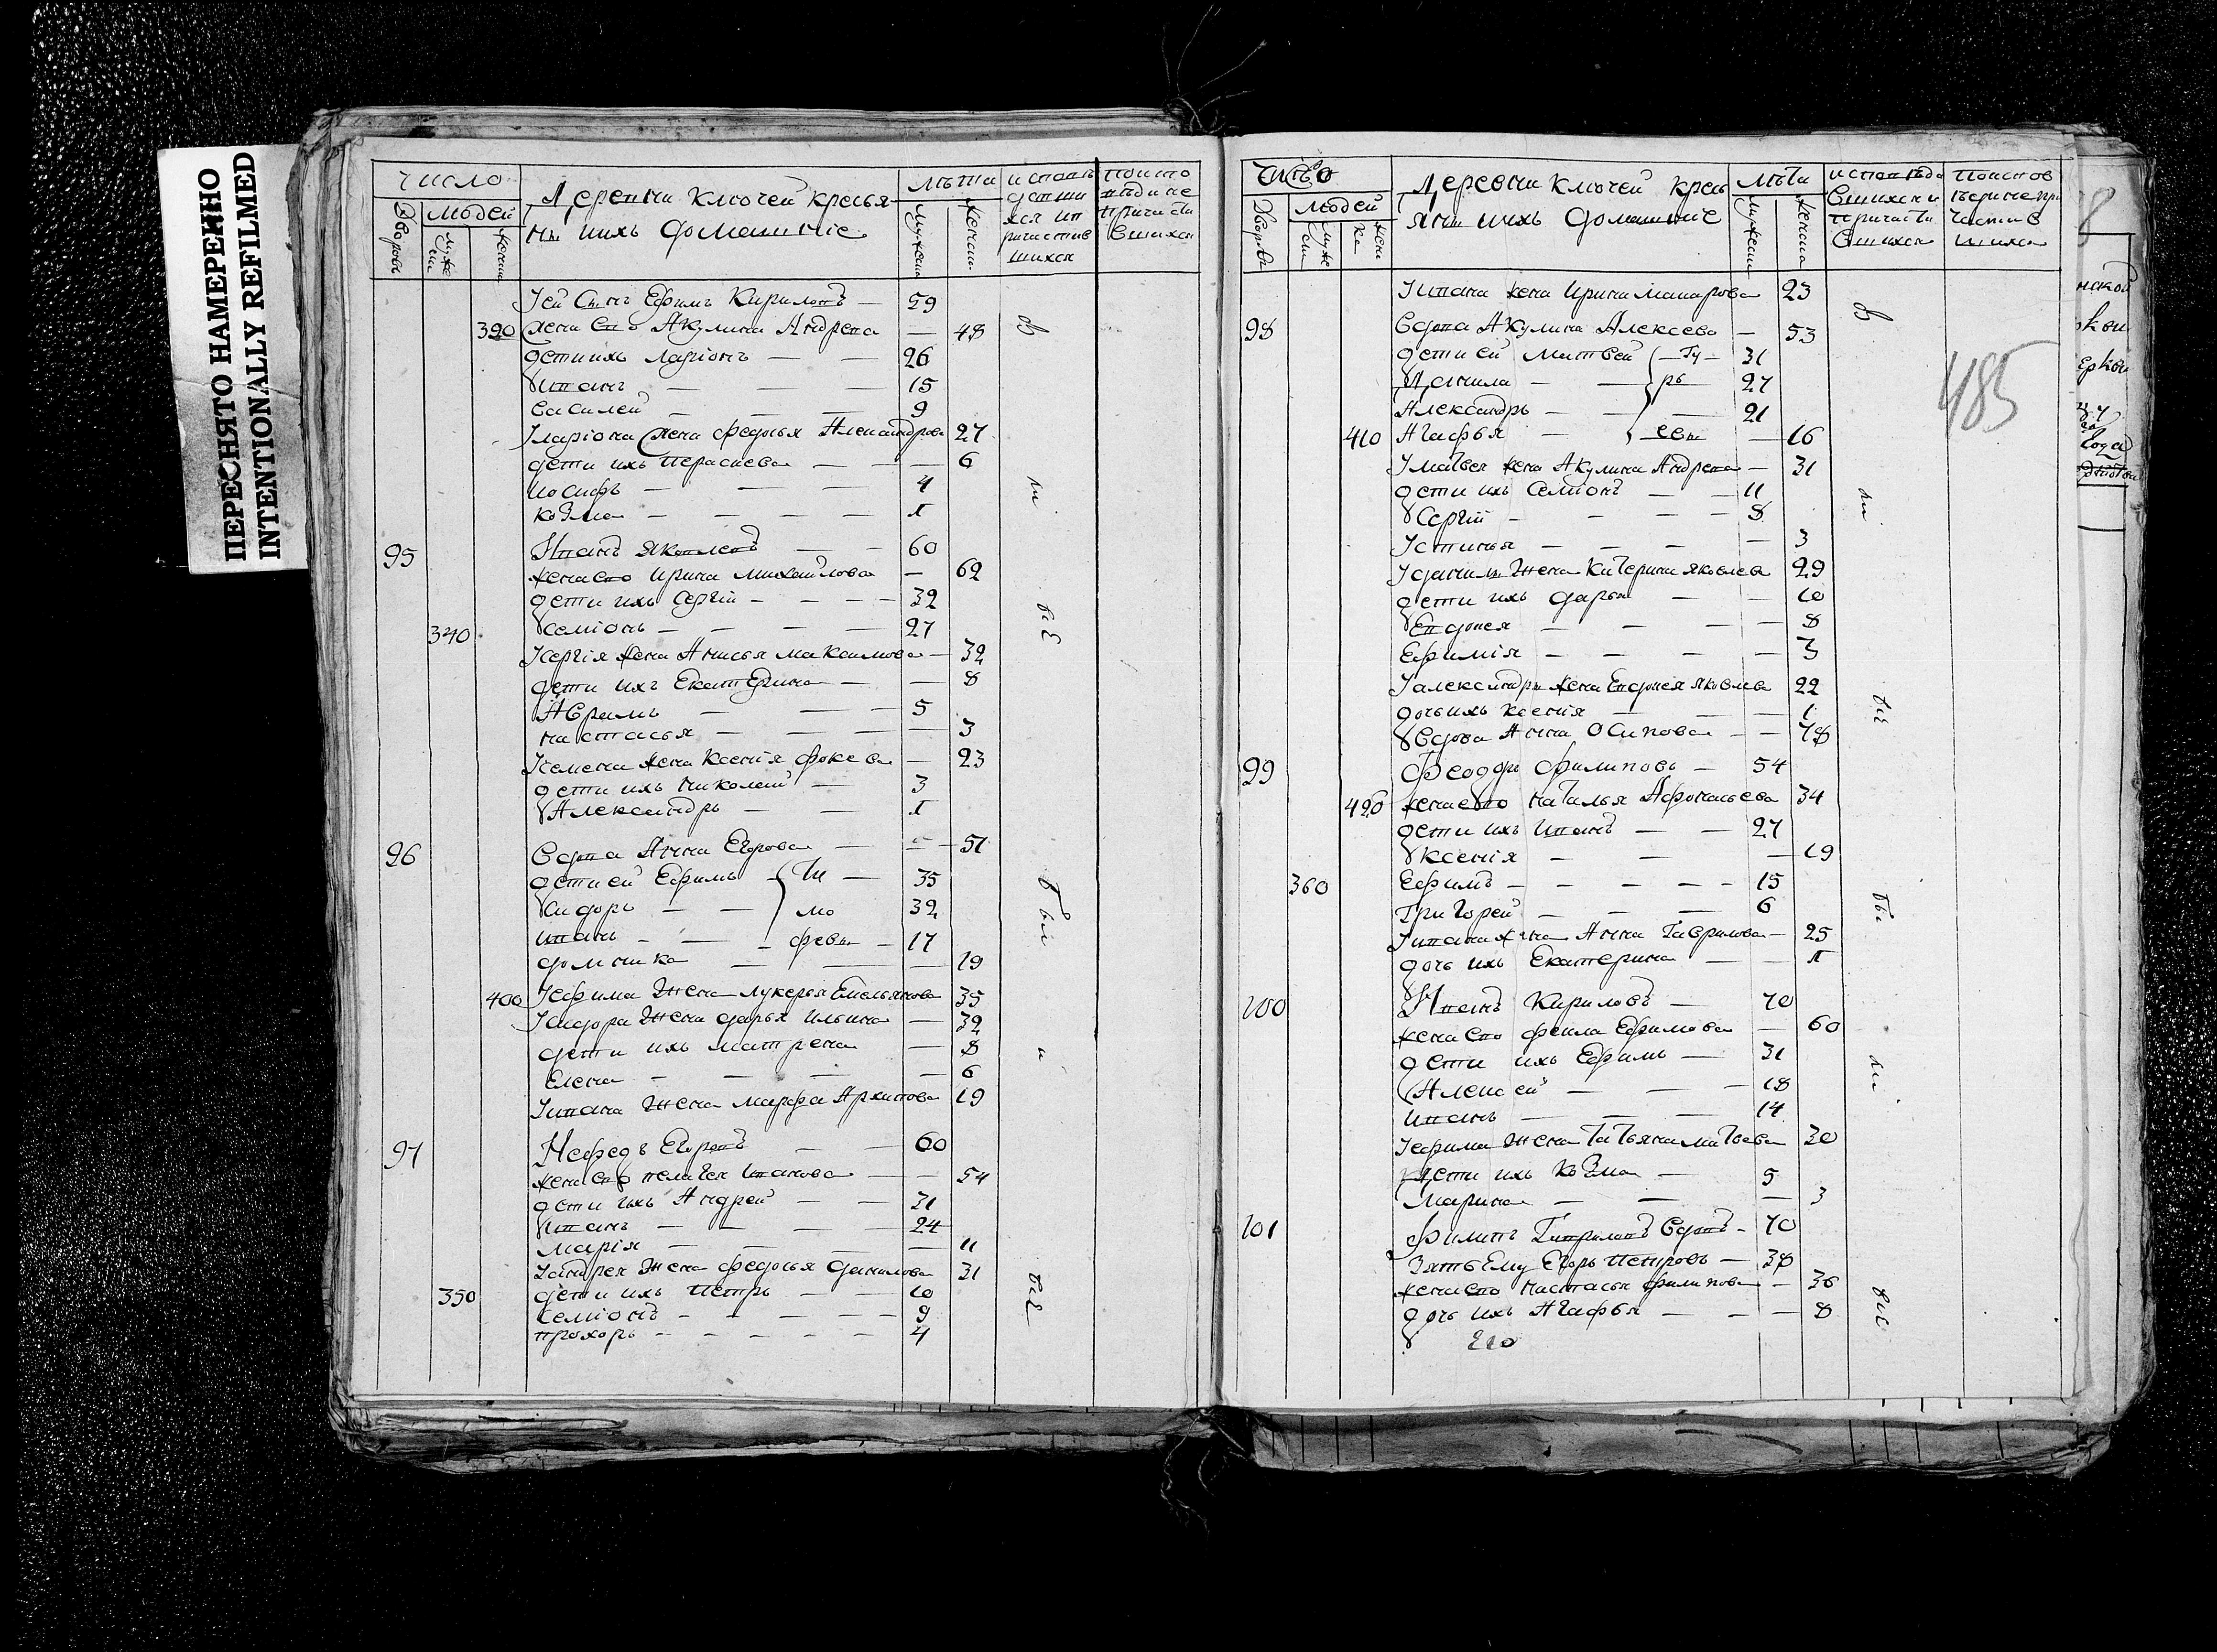 ПЕРЕСНЯТО НАМЕРЕННО
INTENTIONALLY REFILMED
число
Дворовъ
людей
муже
женска
Деревни Ключей кресья-
ны ихъ домашніе
лѣта
мужеска
женска
исповѣ
дтши
хся ип
ричастив
шихся
поиспо
вѣди не
причасти
вшихся
Уей сынъ Ефимъ Кириловъ — 59
390 жена ево Акулина Андрева — 48
дети ихъ Ларіонъ — — 26
Иванъ — — — 15
Василей — — — 9
У Ларіона жена Федосья Александрова 27
дети ихъ Параскева — — — 6
Іосифъ — — — 4
Козма — — — — 1
95 Иванъ Яковлевъ — — 60
жена ево Ирина Михайлова — 62
дети ихъ Сергій — — — — 32
340 Семіонъ — — — — 27
У Сергія жена Анисья Максимова — 32
дети ихъ Екатерина — — 8
Аврамъ — — — 5
Настасья — — — — 3
У Семена жена Ксенія Фокева — 23
дети ихъ Николай — 3
Александръ — — 1
96 Вдова Анна Егорова — — 51
дети ей Ефимъ — Ти — 35
Сидоръ — — мо 32
Иванъ — — — февы — 17
Домника — — — 19
400 У Ефима жена Лукерья Емельянова 35
У Сидора жена Дарья Ильина — 32
дети ихъ Матрена — 8
Елена — — — — 6
У Ивана жена Марфа Архипова 19
97 Нефедъ Егоровъ — — 60
жена ево Пелагея Иванова — — 54
дети ихъ Андрей — — 31
Иванъ — — — — 24
Марія — — — — — 11
У Андрея жена Федосья Данилова 31
350 дети ихъ Петръ — — 10
Семіонъ — — — — — 9
Прохоръ — — — — — 4
были
всѣ
были
всѣ
число
Дворовъ
людей
муже
ски
жен
ка
Деревни Ключей кресь
яны ихъ домашніе
лѣта
мужески
женска
исповѣда
вшихся и
причасти
вшихся
поиспов
ѣди не при
частив
шихся
У Ивана жена Ирина Макарова 23
98 Вдова Акулина Алексева — 53
дети ей Матвей — Гу — 31
Данила — — ръ — 27
Александръ — — — 21
410 Агафья — евы — 16
У Матвея жена Акулина Андрева — 31
дети ихъ Семіонъ — — 11
Сергій — — — — 8
Устинья — — — — 3
У Данилы жена Катерина Яковлева 29
дети ихъ Дарья — — 10
Евдокея — — — — 8
Ефимія — — — — 3
У Александра жена Евдокея Яковлева 22
дочь ихъ Ксенія — — — 1
Вдова Анна Осипова — — 78
99 Феодоръ Филиповъ — 54
420 жена ево Наталья Афонасьева 34
дети ихъ Иванъ — — 27
Ксенія — — — 19
360 Ефимъ — — — — — 15
Григорей — — — 6
У Ивана жена Анна Гаврилова — 25
дочь ихъ Екатерина — — 1
100 Иванъ Кириловъ — 70
жена ево Фекла Ефимова — 60
дети ихъ Ефимъ — 31
Алексей — — — 18
Иванъ — — — 14
У Ефима жена Татьяна Матвева 30
дети ихъ Козма — 5
Марина — — — 3
101 Филипъ Гавриловъ вдовъ — 70
Зять ему Егоръ Петровъ — 38
жена ево Настасья Филипова — 36
дочь ихъ Агафья — — — 8
210
всѣ
бы
ли
всѣ
485